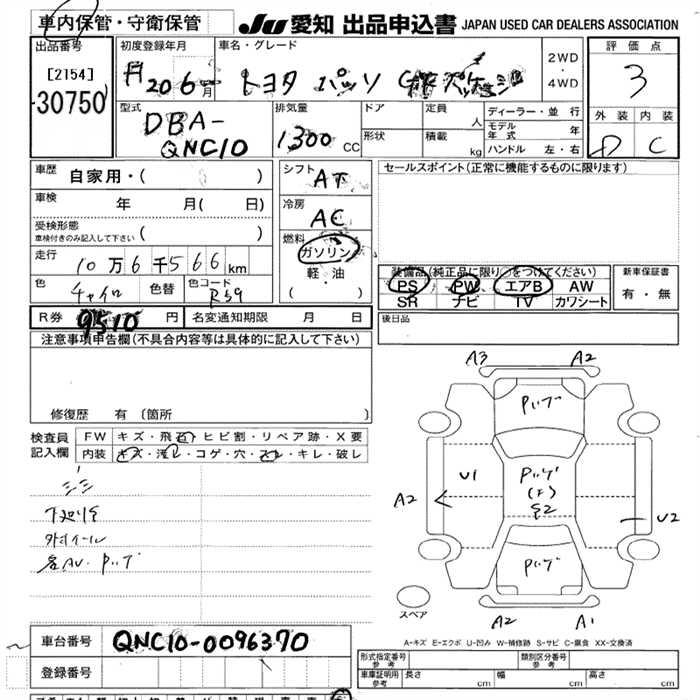 車内保管・守衛保管 JU 愛知 出品申込書 JAPAN USED CAR DEALERS ASSOCIATION
出品番号 初度登録年月 車名・グレード 2WD・4WD 評価点
[2154] 20 6 月 トヨタ パッソ 3
30750
型式 排気量 ドア 定員 人 ディーラー・並行 外装 内装
DBA- 1300 CC 形状 積載 kg モデル年式 年 D C
QNC10 ハンドル 左・右
車歴 自家用・( ) シフト AT セールスポイント(正常に機能するものに限ります)
車検 年 月( 日) 冷房 AC
受検形態
車検付きのみ記入して下さい
燃料 ガソリン
走行 10万6千566km 軽・油
( )
装備品(純正品に限り○をつけてください) 新車保証書
色 チャイロ 色替 色コード R59
PS PW エアB AW 有・無
SR ナビ TV カワシート
R券 9510 円 名変通知期限 月 日 後日品
注意事項申告欄(不具合内容等は具体的に記入して下さい)
修復歴 有 (箇所 )
検査員記入欄 FW キズ・飛石・ヒビ割・リペア跡・X要
内装 キズ・汚レ・コゲ・穴・スレ・キレ・破レ
A3 A2
U1
A2
S2
U2
A2 A1
スペア
A-キズ E-エクボ U-凹み W-補修跡 S-サビ C-腐食 XX-交換済
車台番号 QNC10-0096370
登録番号
形式指定番号 参考 類別区分番号 参考
車庫証明用 参考 長さ cm 幅 cm 高さ cm